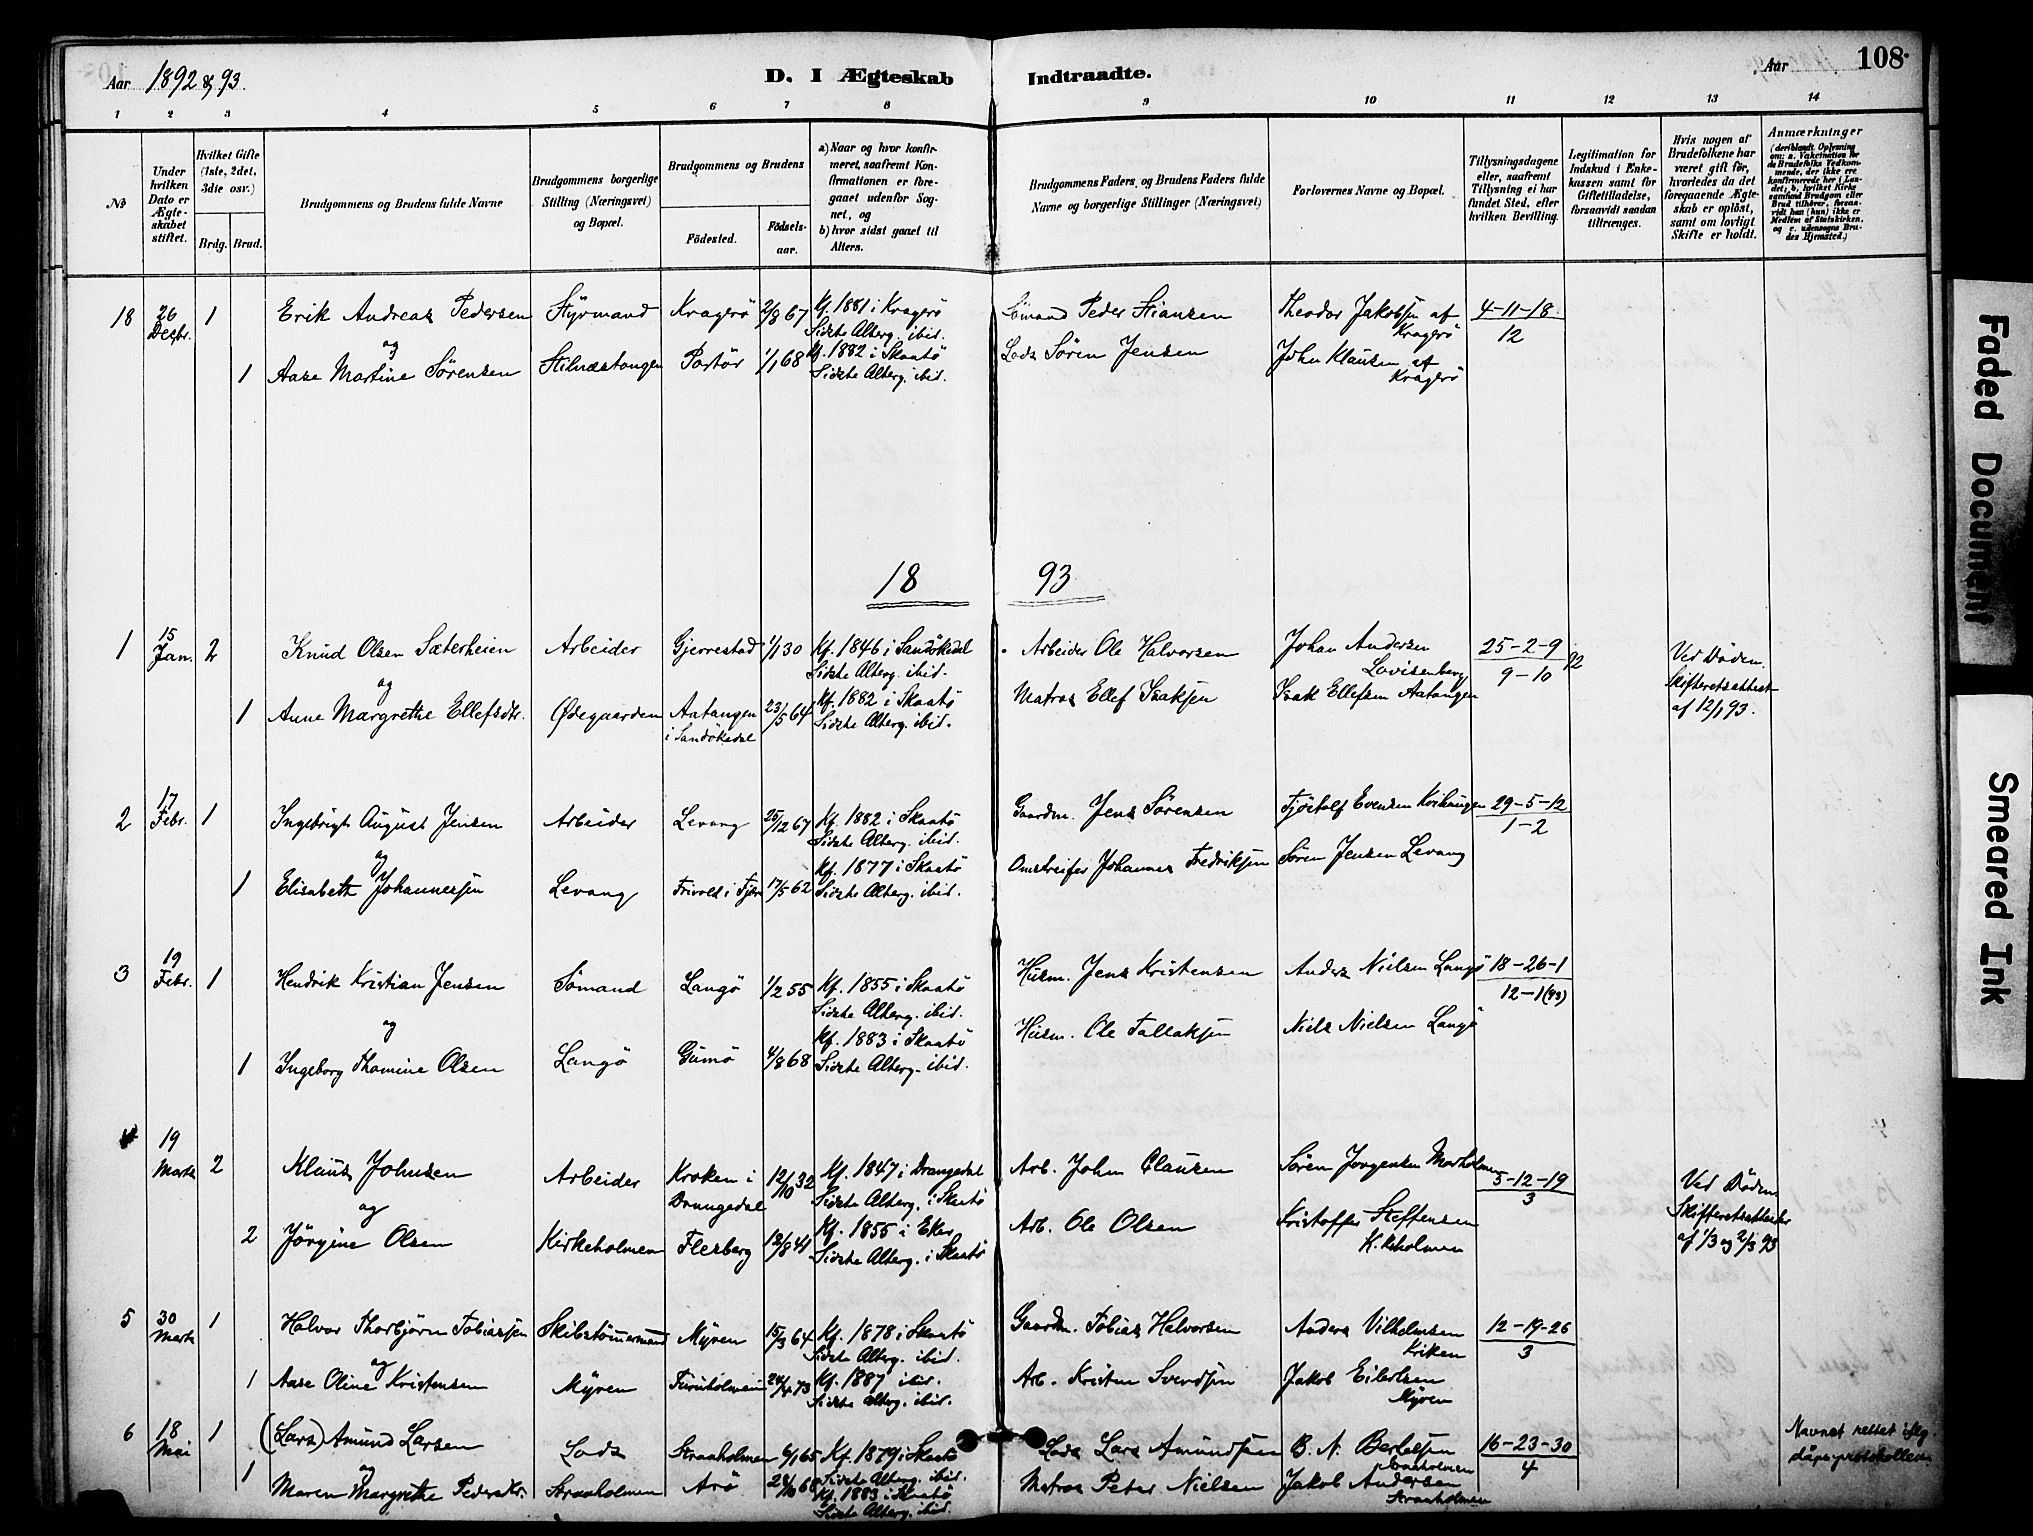 Aar 1892 & 93.
D. I Ægteskab Indtraadte.
Aar
108.
1 2 3 4 5 6 7 8 9 10 11 12 13 14
No
Under hvilken Dato er Ægteskabet stiftet.
Hvilket Gifte (1ste, 2det, 3die osv.)
Brdg. Brud.
Brudgommens og Brudens fulde Navne
Brudgommens borgerlige Stilling (Næringsvei) og Bopæl.
Brudgommens og Brudens
Fødested.
Fødselsaar.
a) Naar og hvor konfirmeret, saafremt Konfirmationen er foregaaet udenfor Sognet, og
b) hvor sidst gaaet til Alters.
Brudgommens Faders, og Brudens Faders fulde Navne og borgerlige Stillinger (Næringsvei)
Forlovernes Navne og Bopæl.
Tillysningsdagene eller, saafremt Tillysning ei har fundet Sted, efter hvilken Bevilling.
Legitimation for Indskud i Enkekassen samt for Giftetilladelse, forsaavidt saadan tiltrænges.
Hvis nogen af Brudefolkene har været gift før, hvorledes da det foregaaende Ægteskab er opløst, samt om lovligt Skifte er holdt.
Anmærkninger (deriblandt Oplysning om: a. Vakcination for de Brudefolks Vedkommende, der ikke ere konfirmerede her i Landet, b. hvilket Kirkesamfund Brudgom eller Brud tilhører, forsaavidt han (hun) ikke er Medlem af Statskirken, og c. udensogns Brudes Hjemsted.)
18 26 Decbr. 1 Erik Andreas Pedersen Styrmand Kragerö 2/8 67 Kf. 1881 i Kragerö Sidste Alterg. ibid. Sömand Peder Stiansen Theodor Jakobsen af Kragerö 4-11-18/12
og
1 Aase Martine Sörensen Stilnæstangen Portör 1/1 68 Kf. 1882 i Skaatö Sidste Alterg. ibid. Lods Sören Jensen John Klausen af Kragerö
18 93
1 15 Jan. 2 Knud Olsen Sæterheien Arbeider Gjerrestad 1/1 30 Kf. 1846 i Sandökedal Sidste Alterg. ibid. Arbeider Ole Halvorsen Johan Andersen Lovisenberg 25-2-9/9-10 92 Ved Döden. Skifteretsattest af 12/1 93.
og
1 Anne Margrethe Ellefsdtr. Ødegaarden Aatangen i Sandökedal 23/5 64 Kf. 1882 i Skaatö Sidste Alterg. ibid. Matros Ellef Isaksen Isak Ellefsen Aatangen
2 17 Febr. 1 Ingebrigt August Jensen Arbeider Levang 25/12 67 Kf. 1882 i Skaatö Sidste Alterg. ibid. Gaardm. Jens Sörensen Tjöstolf Evensen 29-5-12/1-2
og
1 Elisabeth Johannessen Levang Frivold i 17/5 62 Kf. 1877 i Skaatö Sidste Alterg. ibid. Omstreifer Johannes Fredriksen Sören Jensen Levang
3 19 Febr. 1 Hendrik Kristian Jensen Sömand Langö 1/2 55 Kf. 1855 i Skaatö Sidste Alterg. ibid. Husm. Jens Kristensen Anders Nielsen Langö 18-26-1/12-1(93)
og
1 Ingeborg Thomine Olsen Langö Gumö 4/8 68 Kf. 1883 i Skaatö Sidste Alterg. ibid. Husm. Ole Tallaksen Niels Nielsen Langö
4 19 Marts 2 Klaus Johnsen Arbeider Kroken i Drangedal 12/10 32 Kf. 1847 i Drangedal Sidste Alterg. i Skaatö Arb. John Clausen Sören Jorgensen Morholmen 5-12-19/3 Ved Döden Skifteretsattester af 1/3 og 2/3 93
og
2 Jörgine Olsen Kirkeholmen Flesberg 12/8 41 Kf. 1855 i Eker Sidste Alterg. i Skaatö Arb. Ole Olsen Kristoffer Steffensen K.keholmen
5 30 Marts 1 Halvor Thorbjörn Tobiassen Skibstömmermand Myren 15/3 64 Kf. 1878 i Skaatö Sidste Alterg. ibid. Gaardm. Tobias Halvorsen Anders Vilhelmsen Kriken 12-19-26/3
og
1 Aase Oline Kristensen Myren Furuholmen 24/4 73 Kf. 1887 ibid. Sidste Alterg. ibid. Arb. Kristen Svendsen Jakob Eilertsen Myren
6 18 Mai 1 (Lars) Amund Larsen Lods Straaholmen 6/1 65 Kf. 1879 i Skaatö Sidste Alterg. ibid. Lods Lars Amundsen B. N. Bertelsen Straaholmen 16-23-30/4 Navnet rettet iflg. dåpsprotokollen
og
1 Maren Margrethe Pedersdtr. Straaholmen Arö 28/10 68 Kf. 1883 i Skaatö Sidste Alterg. ibid. Matros Peter Nielsen Jakob Andersen Straaholmen
Faded Document
Smeared Ink